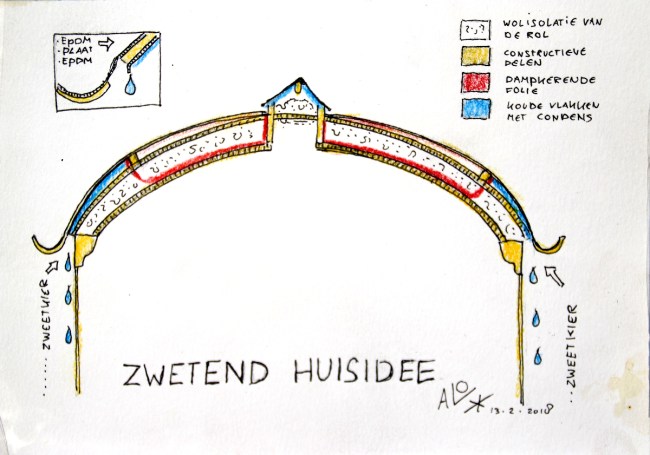 · EPDM
· PLAAT
· EPDM
WOLISOLATIE VAN DE ROL
CONSTRUCTIEVE DELEN
DAMPKERENDE FOLIE
KOUDE VLAKKEN MET CONDENS
...... ZWEETKIER
... ZWEETKIER
ZWETEND HUISIDEE
13·2·2018